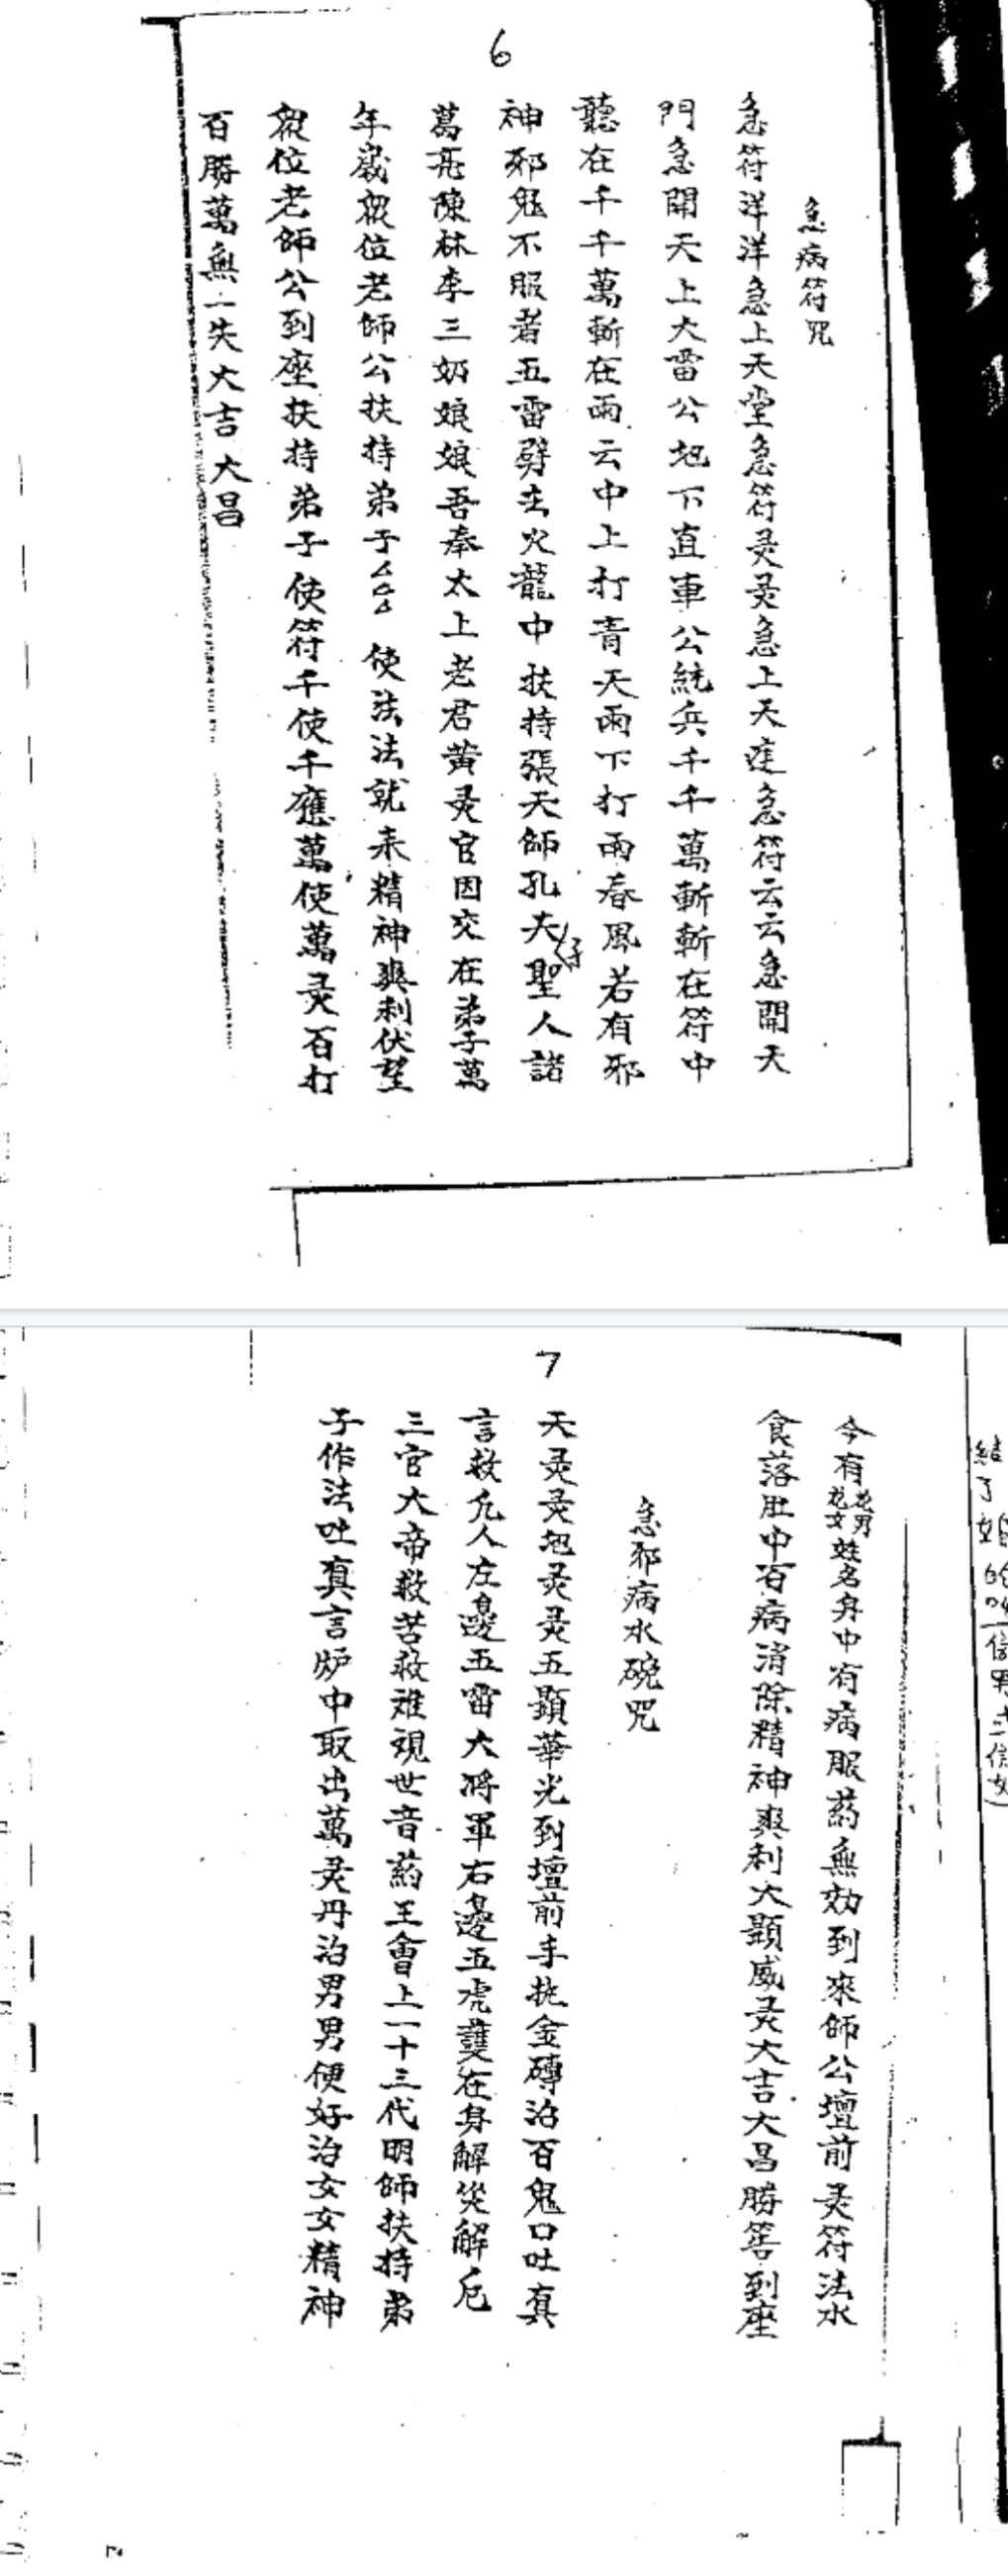 6
急病符咒
急符洋洋急上天堂急符灵灵急上天庭急符云云急開天
門急開天上大雷公地下直車公統兵千千萬斬斬在符中
聽在千千萬斬在雨云中上打青天雨下打雨春風若有邪
神邪鬼不服者五雷劈在火龍中扶持張天師孔夫子聖人諸
葛亮陳林李三奶娘娘吾奉太上老君黄灵官因交在弟子萬
年歲眾位老師公扶持弟子厶厶厶使法法就来精神爽利伏望
眾位老師公到座扶持弟子使符千使千應萬使萬灵百打
百勝萬無一失大吉大昌
7
今有花男花女姓名身中有病服葯無効到來師公壇前灵符法水
食落肚中百病消除精神爽利大顕威灵大吉大昌勝筶到座
急邪病水碗咒
天灵灵地灵灵五顕華光到壇前手执金磚治百鬼口吐真
言救凢人左邊五雷大将軍右邊五虎護在身解災解厄
三官大帝救苦救难視世音葯王會上一十三代明師扶持弟
子作法吐真言炉中取出萬灵丹治男男便好治女女精神